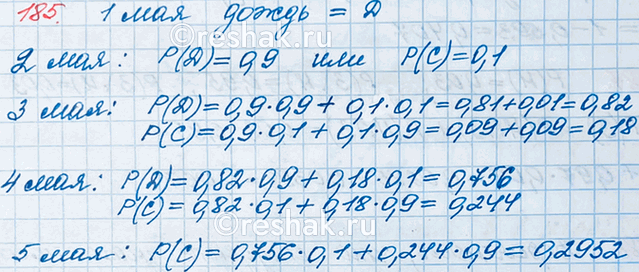 185. 1 мая дождь = Д
2 мая: P(Д)=0,9 или P(C)=0,1
3 мая: P(Д)=0,9·0,9+0,1·0,1=0,81+0,01=0,82
P(C)=0,9·0,1+0,1·0,9=0,09+0,09=0,18
4 мая: P(Д)=0,82·0,9+0,18·0,1=0,756
P(C)=0,82·0,1+0,18·0,9=0,244
5 мая: P(C)=0,756·0,1+0,244·0,9=0,2952
reshak.ru